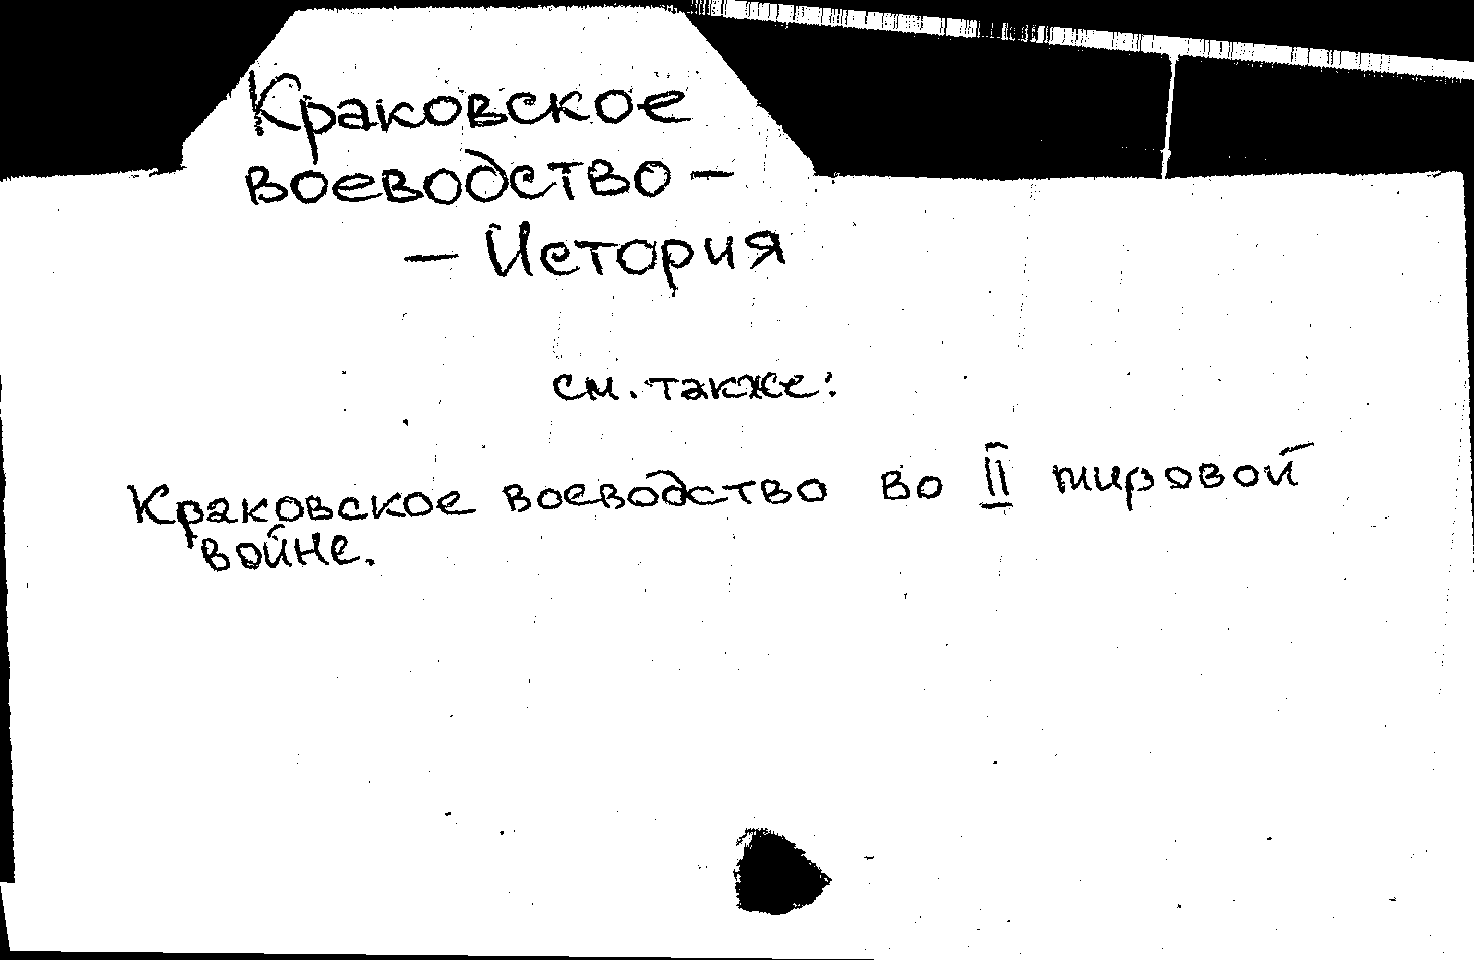 Краковское
воеводство –
– История
см. также:
Краковское воеводство во II мировой
войне.